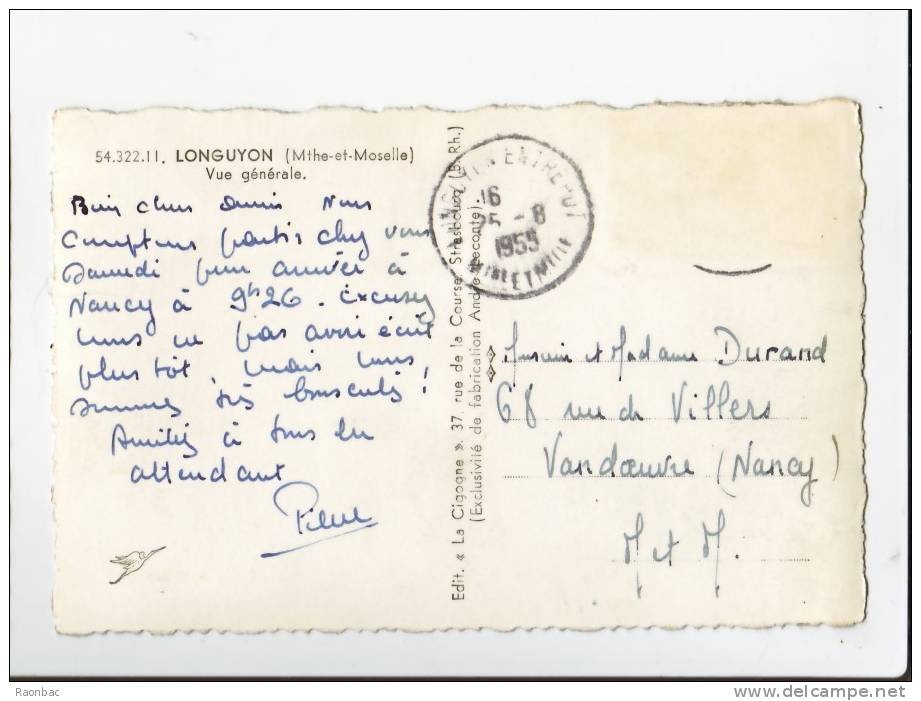 54.322.11. LONGUYON (Mthe-et-Moselle)
Vue générale.
Bien chers amis Nous
comptons partir chez vous
samedi pour arriver à
Nancy à 9h26. Excusez
nous ne pas avoir écrit
plus tôt, mais nous
sommes très bousculés !
Amitiés à tous en
attendant
Pierre
Edit. « La Cigogne ». 37, rue de la Course, Strasbourg (B.-Rh.)
(Exclusivité de fabrication André Leconte).
LONGUYON ENTREPOT
16
25 -8
1959
MTHE ET MLLE
Monsieur et Madame Durand
68 rue de Villers
Vandœuvre (Nancy)
M et M.
Raonbac
delcampe.net